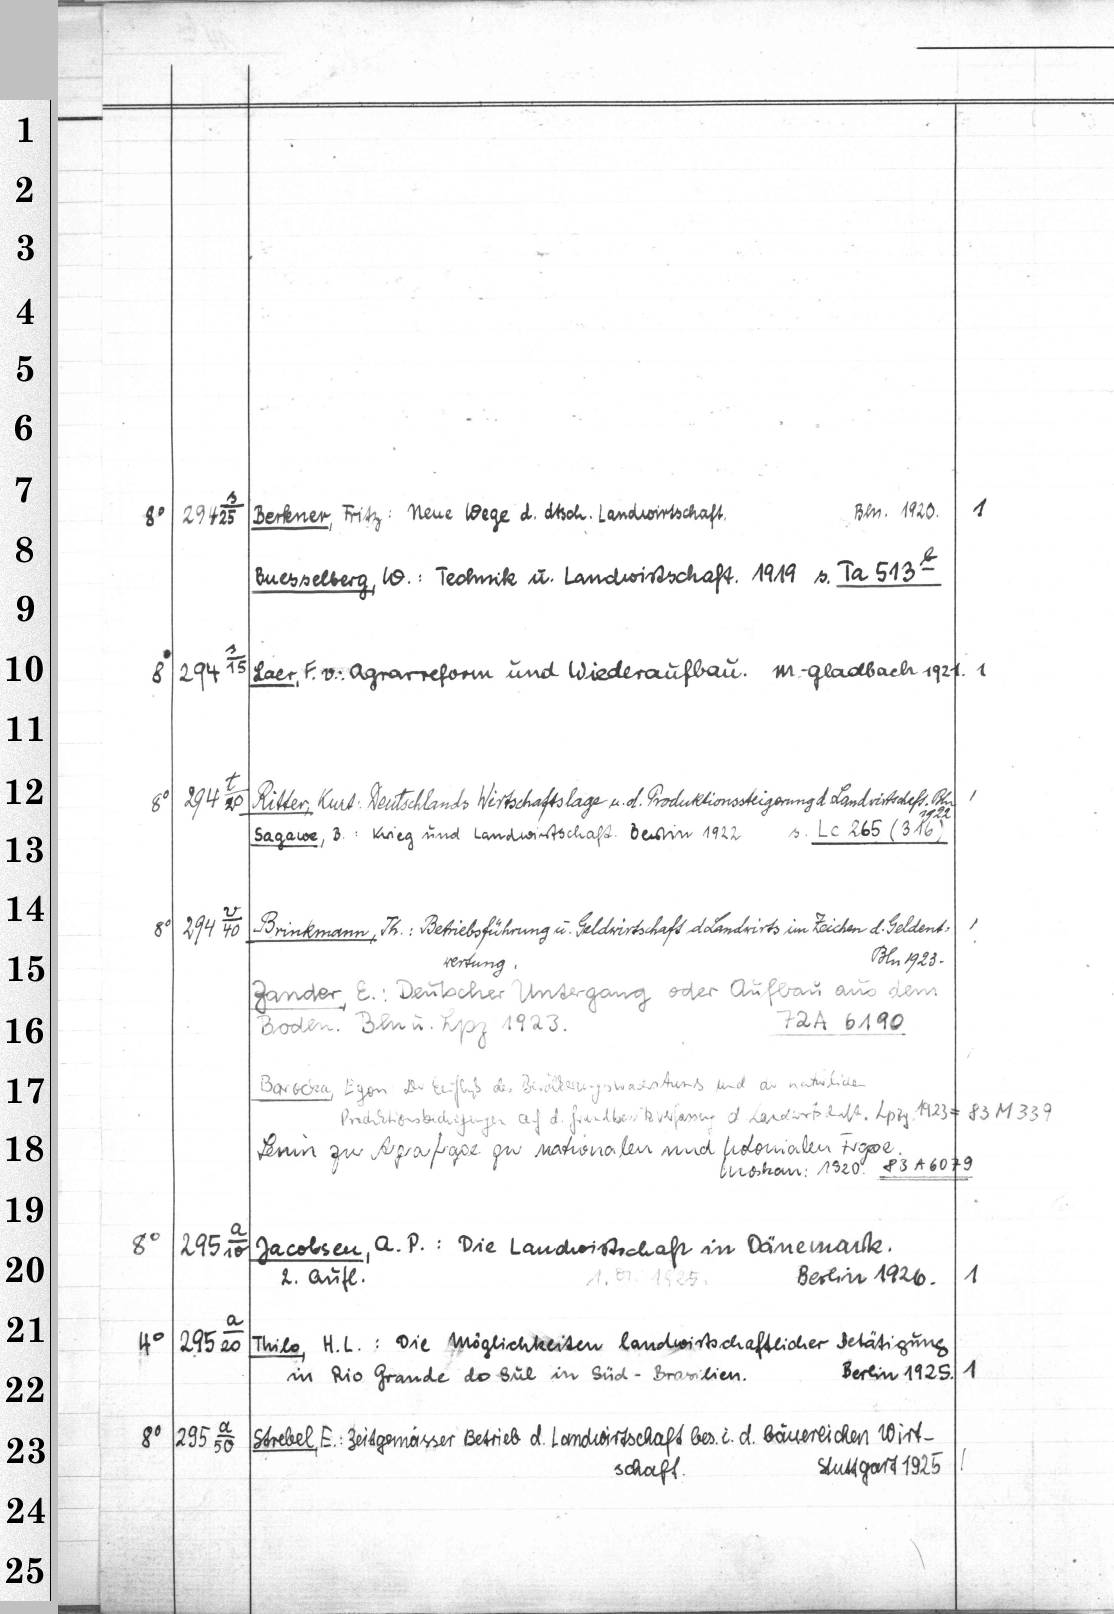 1
2
3
4
5
6
7
8° 294 s/25 Berkner, Fritz: Neue Wege d. dtsch. Landwirtschaft. Bln. 1920. 1
8
Buesselberg, W.: Technik u. Landwirtschaft. 1919 s. Ta 513 b
9
10
8° 294 s/15 Laer, F. v.: Agrarreform und Wiederaufbau. M.-gladbach 1921. 1
11
12
8° 294 t/20 Ritter, Kurt: Deutschlands Wirtschaftslage u. d. Produktionssteigerung d Landwirtschaft. Bln 1922 !
13
Sagawe, B.: Krieg und Landwirtschaft. Berlin 1922 s. Lc 265 (316)
14
8° 294 v/40 Brinkmann, Th.: Betriebsführung u. Geldwirtschaft d Landwirts im Zeichen d. Geldent- !
15
wertung. Bln 1923.
Zander, E.: Deutscher Untergang oder Aufbau aus dem
16
Boden. Bln u. Lpz 1923. 72A 6190
17
Barocka, Egon Der Einfluß des Bevölkerungswachstums und der natürlichen
Produktionsbedingungen auf d. Grundbesitzverfassung d Landwirtschaft. Lpzg. 1923 = 83 M 339
18
Lenin zur Agrarfrage zur nationalen und kolonialen Frage.
Moskau: 1920. 83 A 6079
19
8° 295 a/10 Jacobsen, A. P.: Die Landwirtschaft in Dänemark.
20
2. Aufl. 1925. Berlin 1926. 1
21
4° 295 a/20 Thilo, H. L.: Die Möglichkeiten landwirtschaftlicher Betätigung
22
in Rio Grande do Sul in Süd-Brasilien. Berlin 1925. 1
23
8° 295 a/50 Strebel, E.: Zeitgemässer Betrieb d. Landwirtschaft bes. i. d. bäuerlichen Wirt-
schaft. Stuttgart 1925 !
24
25